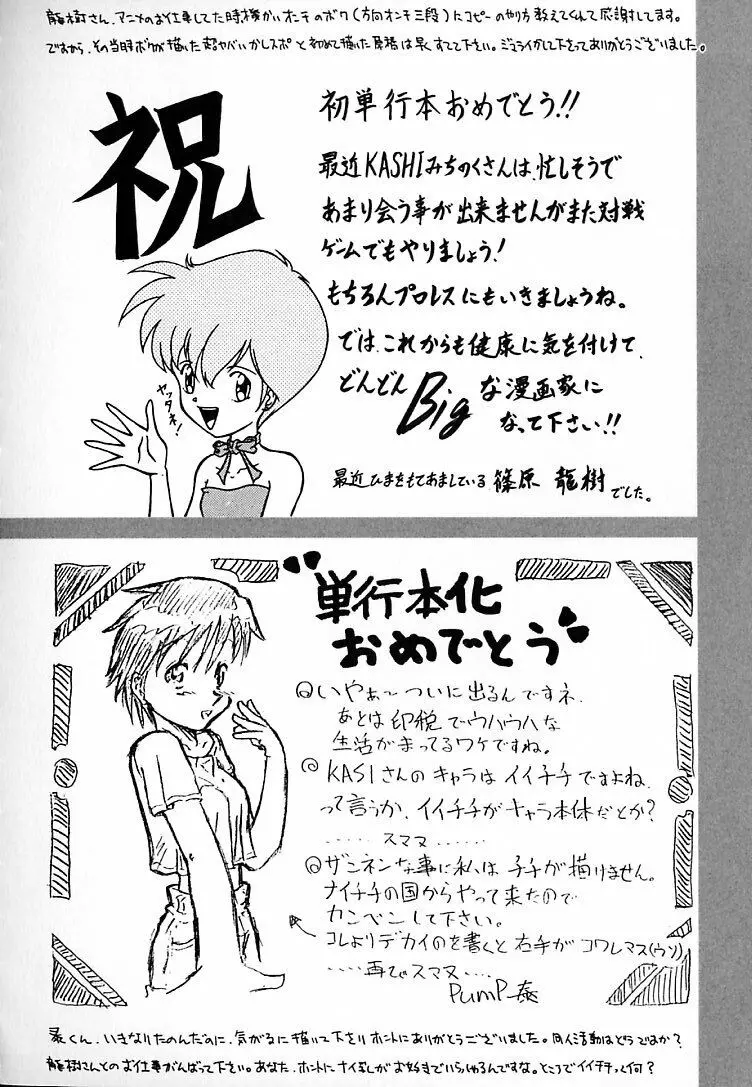 龍樹さん、アニメのお仕事してた時機かいオンチのボク(方向オンチ三段)にコピーのやり方教えてくれて感謝してます。
ですから、その当時ボクが描いた超ヤバいかしスポと初めて描いた原稿は早くすてて下さい。ジュライかして下さってありがとうございました。
祝
初単行本おめでとう!!
最近KASHIみちのくさんは、忙しそうで
あまり会う事が出来ませんがまた対戦
ゲームでもやりましょう!
もちろんプロレスにもいきましょうね。
では、これからも健康に気を付けて、
どんどんBigな漫画家に
なって下さい!!
ヤッタネ!
最近ひまをもてあましている 篠原 龍樹でした。
単行本化
おめでとう
いやぁ〜ついに出るんですネ
あとは印税でウハウハな
生活がまってるワケですね。
KASIさんのキャラはイイチチですよね、
って言うか、イイチチがキャラ本体だとか?
……スマヌ……
ザンネンな事に私は チチが描けません。
ナイチチの国からやって来たので
カンベンして下さい。
コレよりデカイのを書くと右手がコワレマス(ウソ)
……再びスマヌ……
PUMP
くん、いきなりたのんだのに、気がるに描いて下さりホントにありがとうございました。同人活動はどうですか?
龍樹さんとのお仕事がんばって下さい。あなた、ホントにナイ乳がお好きでいらっしゃるんですな。ところでイイチチって何?